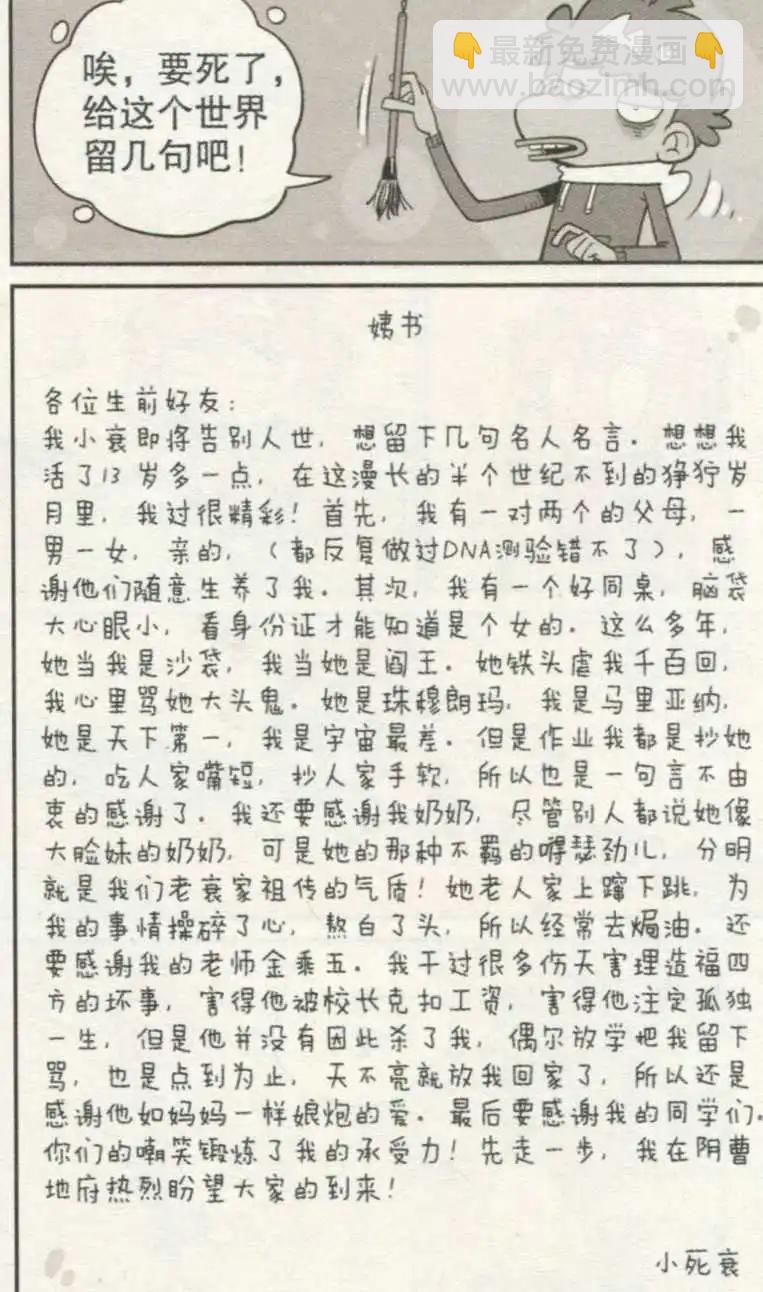 唉，要死了，
给这个世界
留几句吧！
👇最新免费漫画👇
www.baozimh.com
姨书
各位生前好友：
我小衰即将告别人世，想留下几句名人名言。想想我
活了13岁多一点，在这漫长的半个世纪不到的狰狞岁
月里，我过很精彩！首先，我有一对两个的父母，一
男一女，亲的，（都反复做过DNA测验错不了），感
谢他们随意生养了我。其次，我有一个好同桌，脑袋
大心眼小，看身份证才能知道是个女的。这么多年，
她当我是沙袋，我当她是阎王。她铁头虐我千百回，
我心里骂她大头鬼。她是珠穆朗玛，我是马里亚纳，
她是天下第一，我是宇宙最差。但是作业我都是抄她
的，吃人家嘴短，抄人家手软，所以也是一句言不由
衷的感谢了。我还要感谢我奶奶，尽管别人都说她像
大脸妹的奶奶，可是她的那种不羁的嘚瑟劲儿，分明
就是我们老衰家祖传的气质！她老人家上蹿下跳，为
我的事情操碎了心，熬白了头，所以经常去焗油。还
要感谢我的老师金乘五。我干过很多伤天害理造福四
方的坏事，害得他被校长克扣工资，害得他注定孤独
一生，但是他并没有因此杀了我，偶尔放学把我留下
骂，也是点到为止，天不亮就放我回家了，所以还是
感谢他如妈妈一样娘炮的爱。最后要感谢我的同学们。
你们的嘲笑锻炼了我的承受力！先走一步，我在阴曹
地府热烈盼望大家的到来！
小死衰